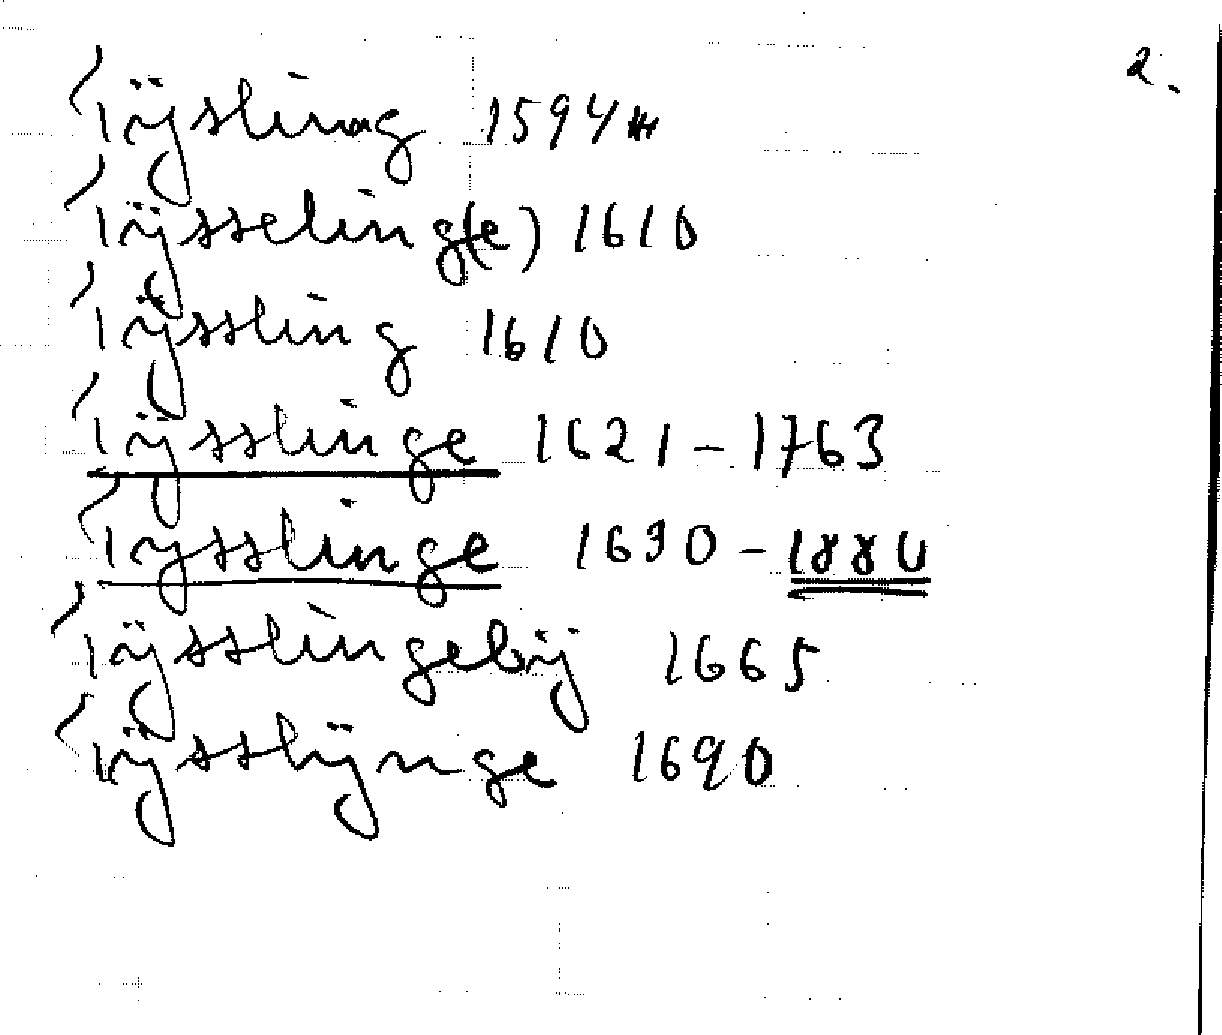 2.
Tÿsling 1594
Tÿsseling(e) 1610
Tÿssling 1610
Tÿsslinge 1621-1763
Tysslinge 1630-1886
Tÿsslingebÿ 1665
Tÿsslÿnge 1690